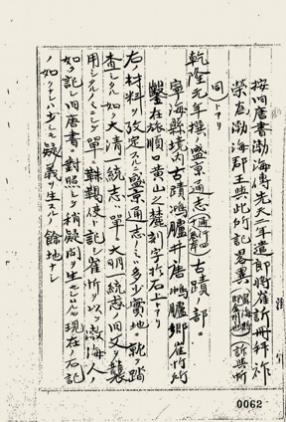 按旧唐書渤海傳先天二年遣郎將崔訢冊拜祚
榮為渤海郡王與此所記畧異
同シトナリ
乾隆元年撰盛京通志古蹟ノ部ニ
寧海縣境内古蹟鴻臚井唐鴻臚卿崔忻所
鑿在旅順口黄山之麓刻字於石上トナリ
右ノ材料ヲ攷定スルニ盛京通志ノミハ多少實地ニ就キ踏
査シタル如ク大清一統志ハ單ニ大明一統志ノ旧文ヲ襲
用シタルノミニシテ單ニ靺鞨使ト記シ崔忻ヲ以テ渤海人ノ
如ク記シ旧唐書ニ對照シテ稍疑問ヲ生セルモ現在ノ石記
ノ如クナレハ少シモ疑義ヲ生スルノ餘地ナシ
0062